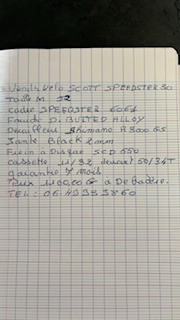 Vends Vélo SCOTT SPEEDSTER 30
Taille M 52
cadre SPEEDSTER 6061
D. BUTTED ALLOY
Derailleur Shimano R 2000 GS
Jante Black 2mm
Frein a Disque SCD 550
cassette 11/32 devant 50/34T
garantie 7 mois
Prix 1100,00 € a Debattre.
TEL: 06